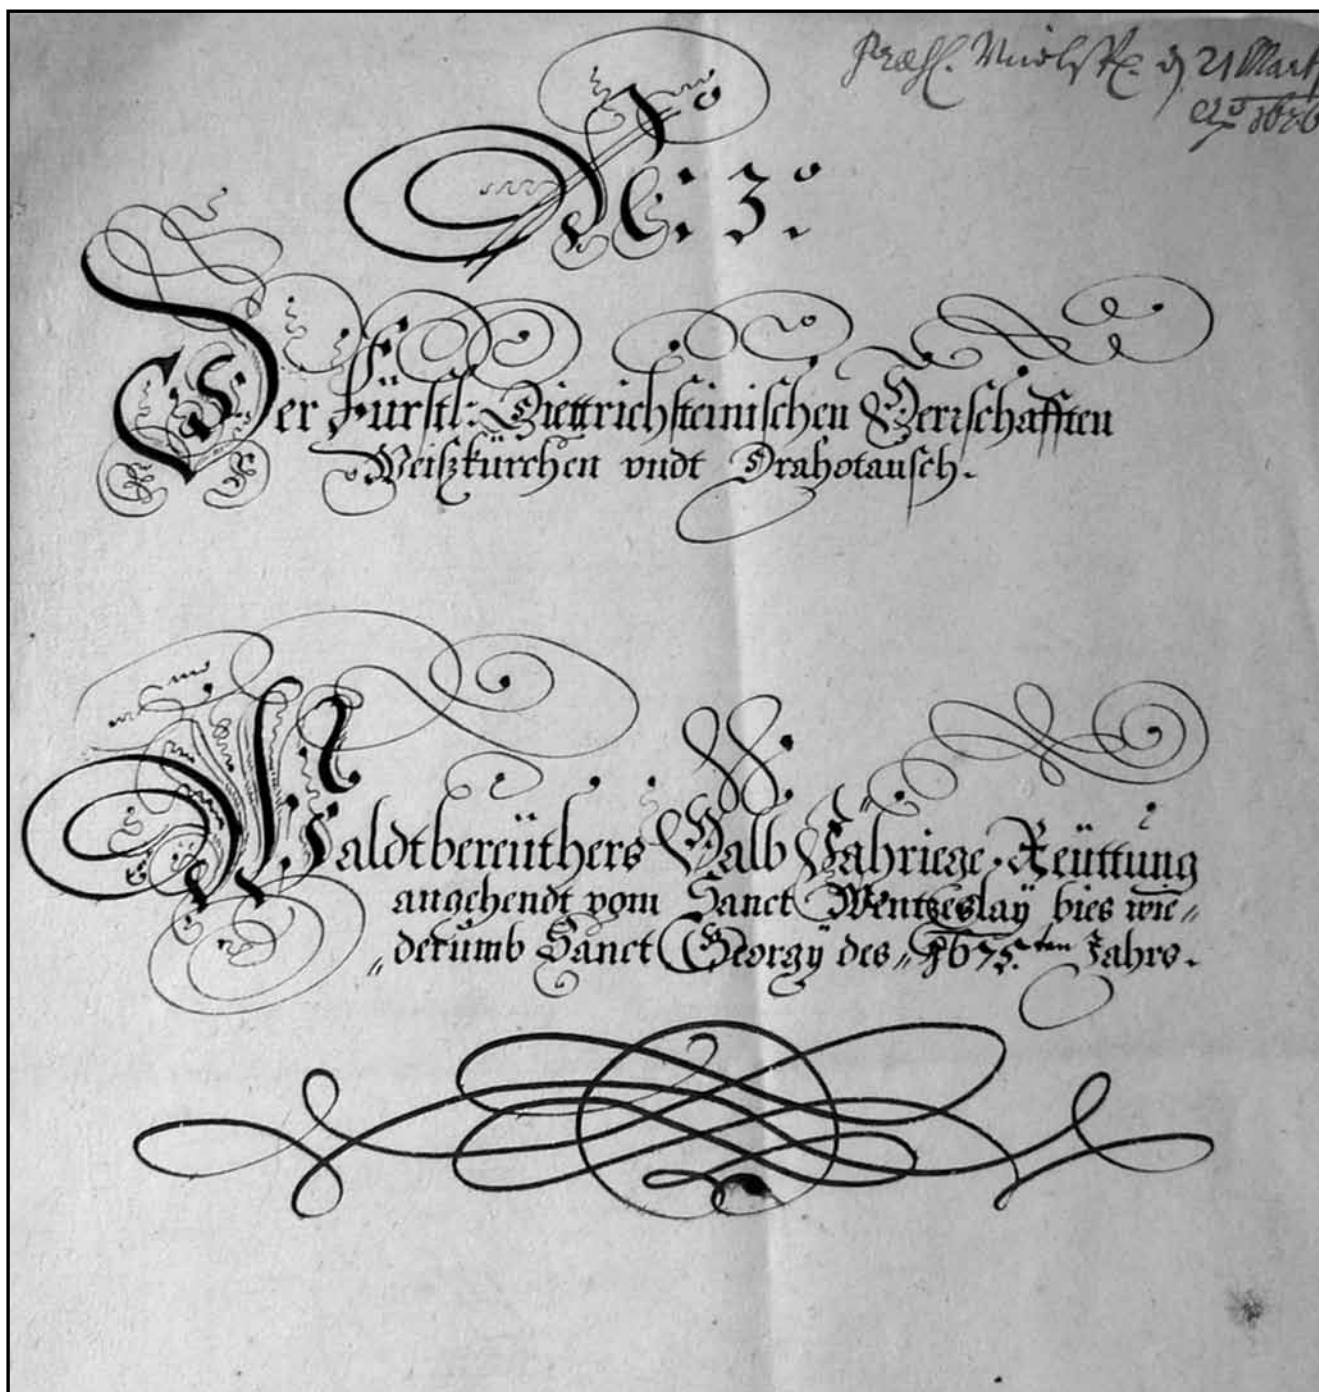 21 Marty
Ao 1676
No: 3o.
Der Fürstl: Diettrichsteinischen Herrschafften
Weißkürchen vndt Drahotausch.
Waldtbereüthers Halb Jähriege Reüttung
angehendt vom Sanct Wentzeslaÿ bies wie„
„derumb Sanct Georgÿ des„ 1675.ten Jahrs.